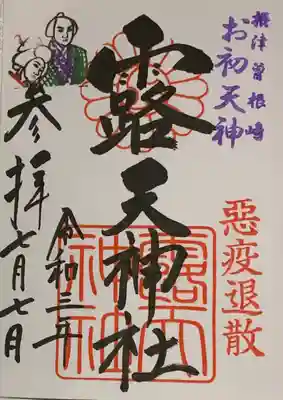 摂津曽根崎
お初天神
惡疫退散
露天神社
露天神社
令和三年
七月七日
参拝